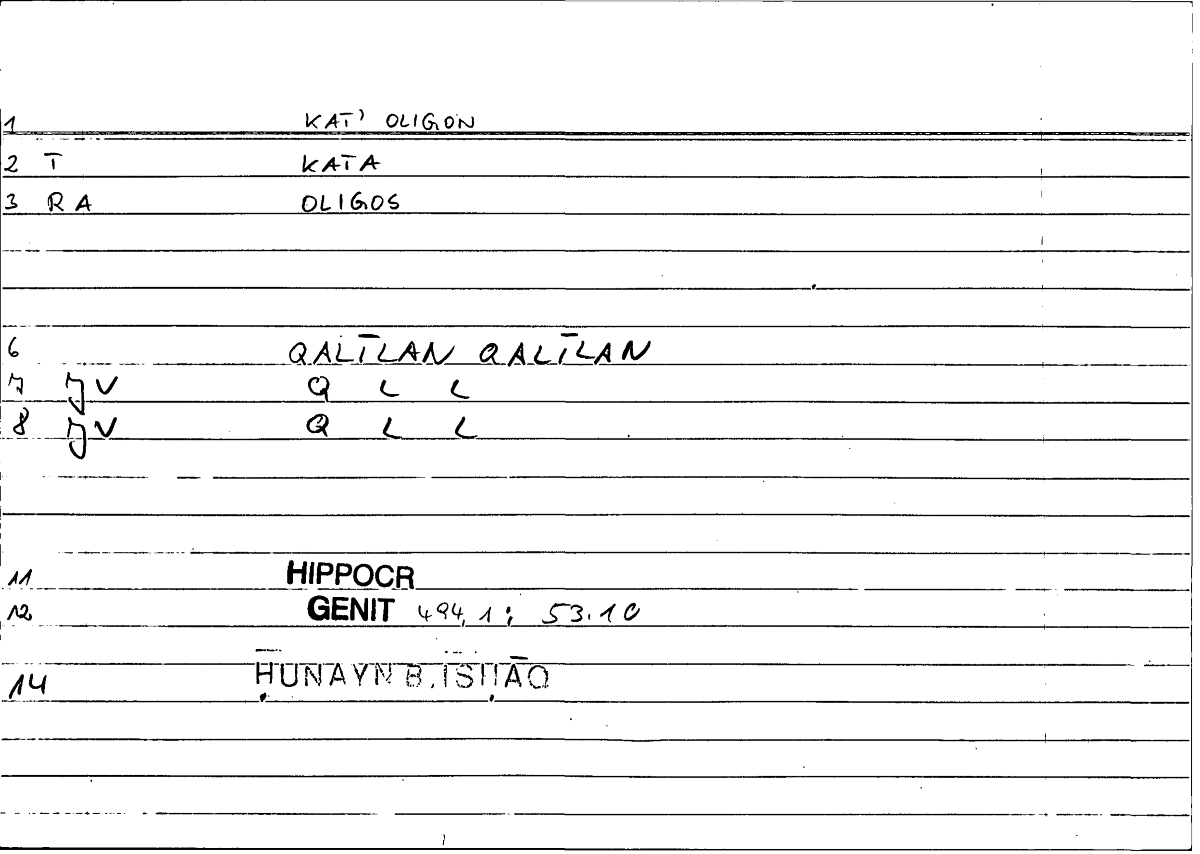 1 KAT' OLIGON
2 T KATA
3 R A OLIGOS
6 QALĪLAN QALĪLAN
7 JV Q L L
8 JV Q L L
11 HIPPOCR
12 GENIT 494,1; 53.10
14 ḤUNAYN B. ISḤĀQ